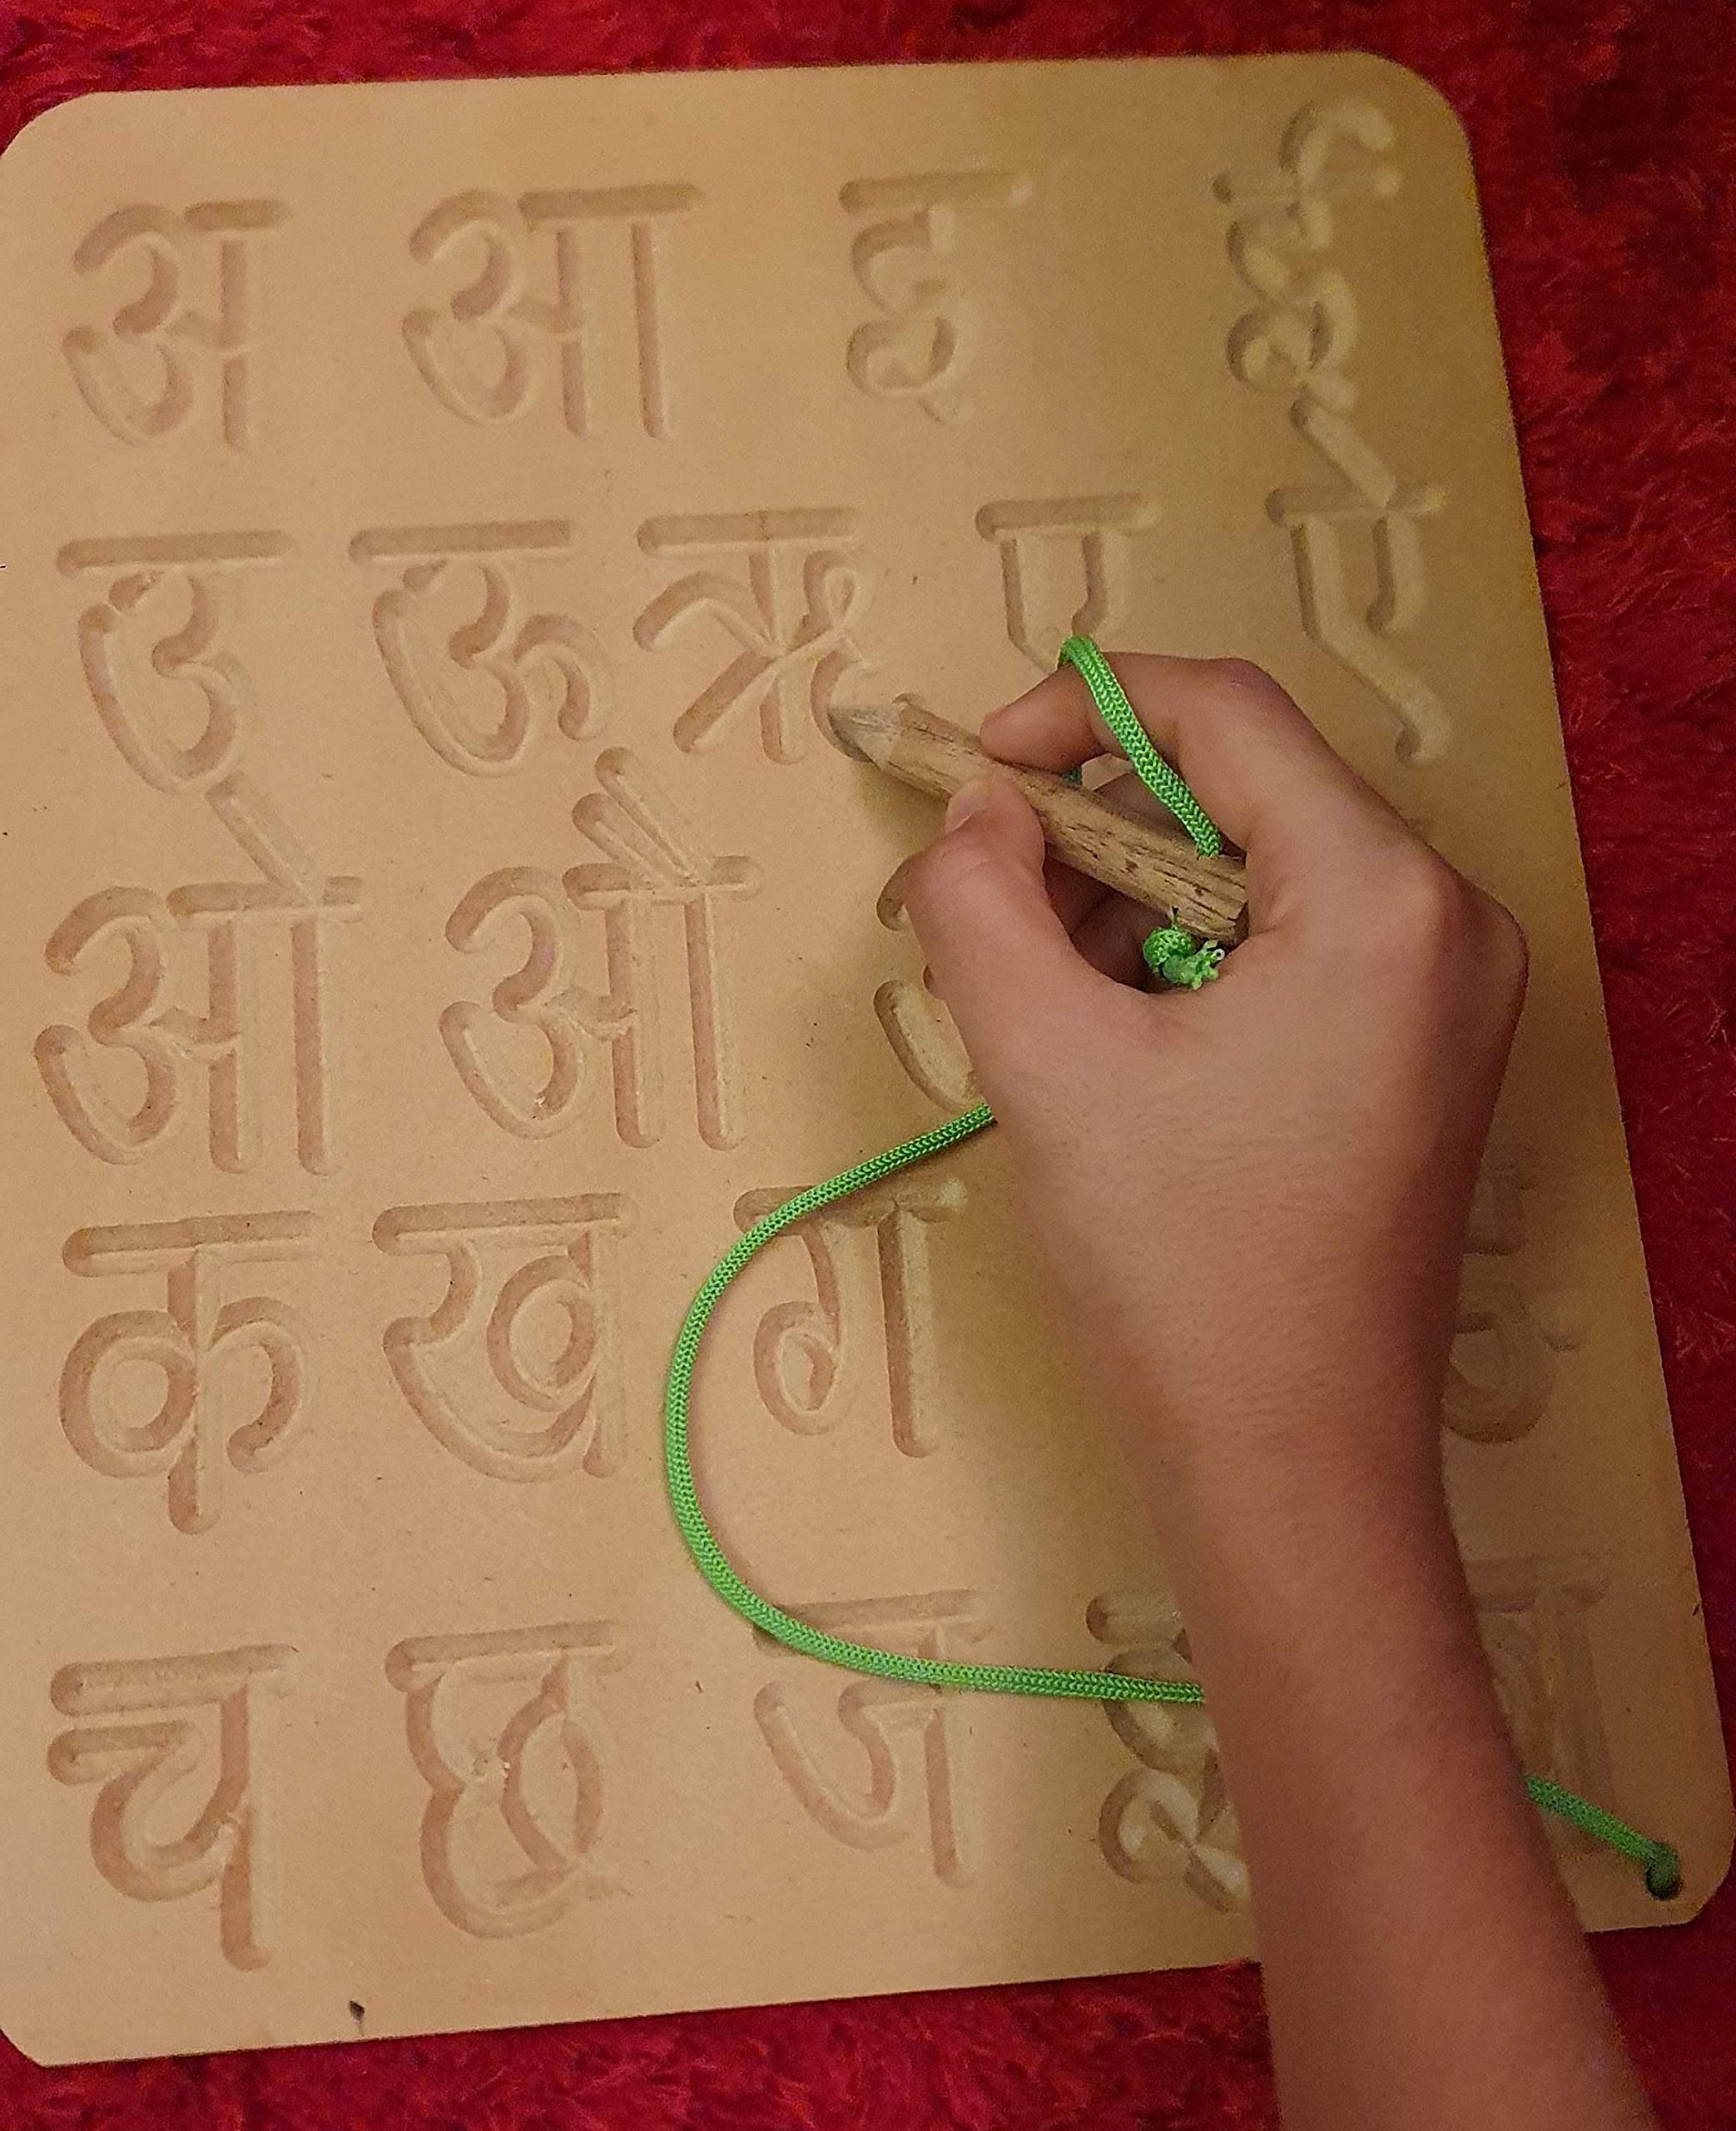 अ आ इ ई
उ ऊ ऋ ए ऐ
ओ औ
क ख ग ङ
च छ ज झ